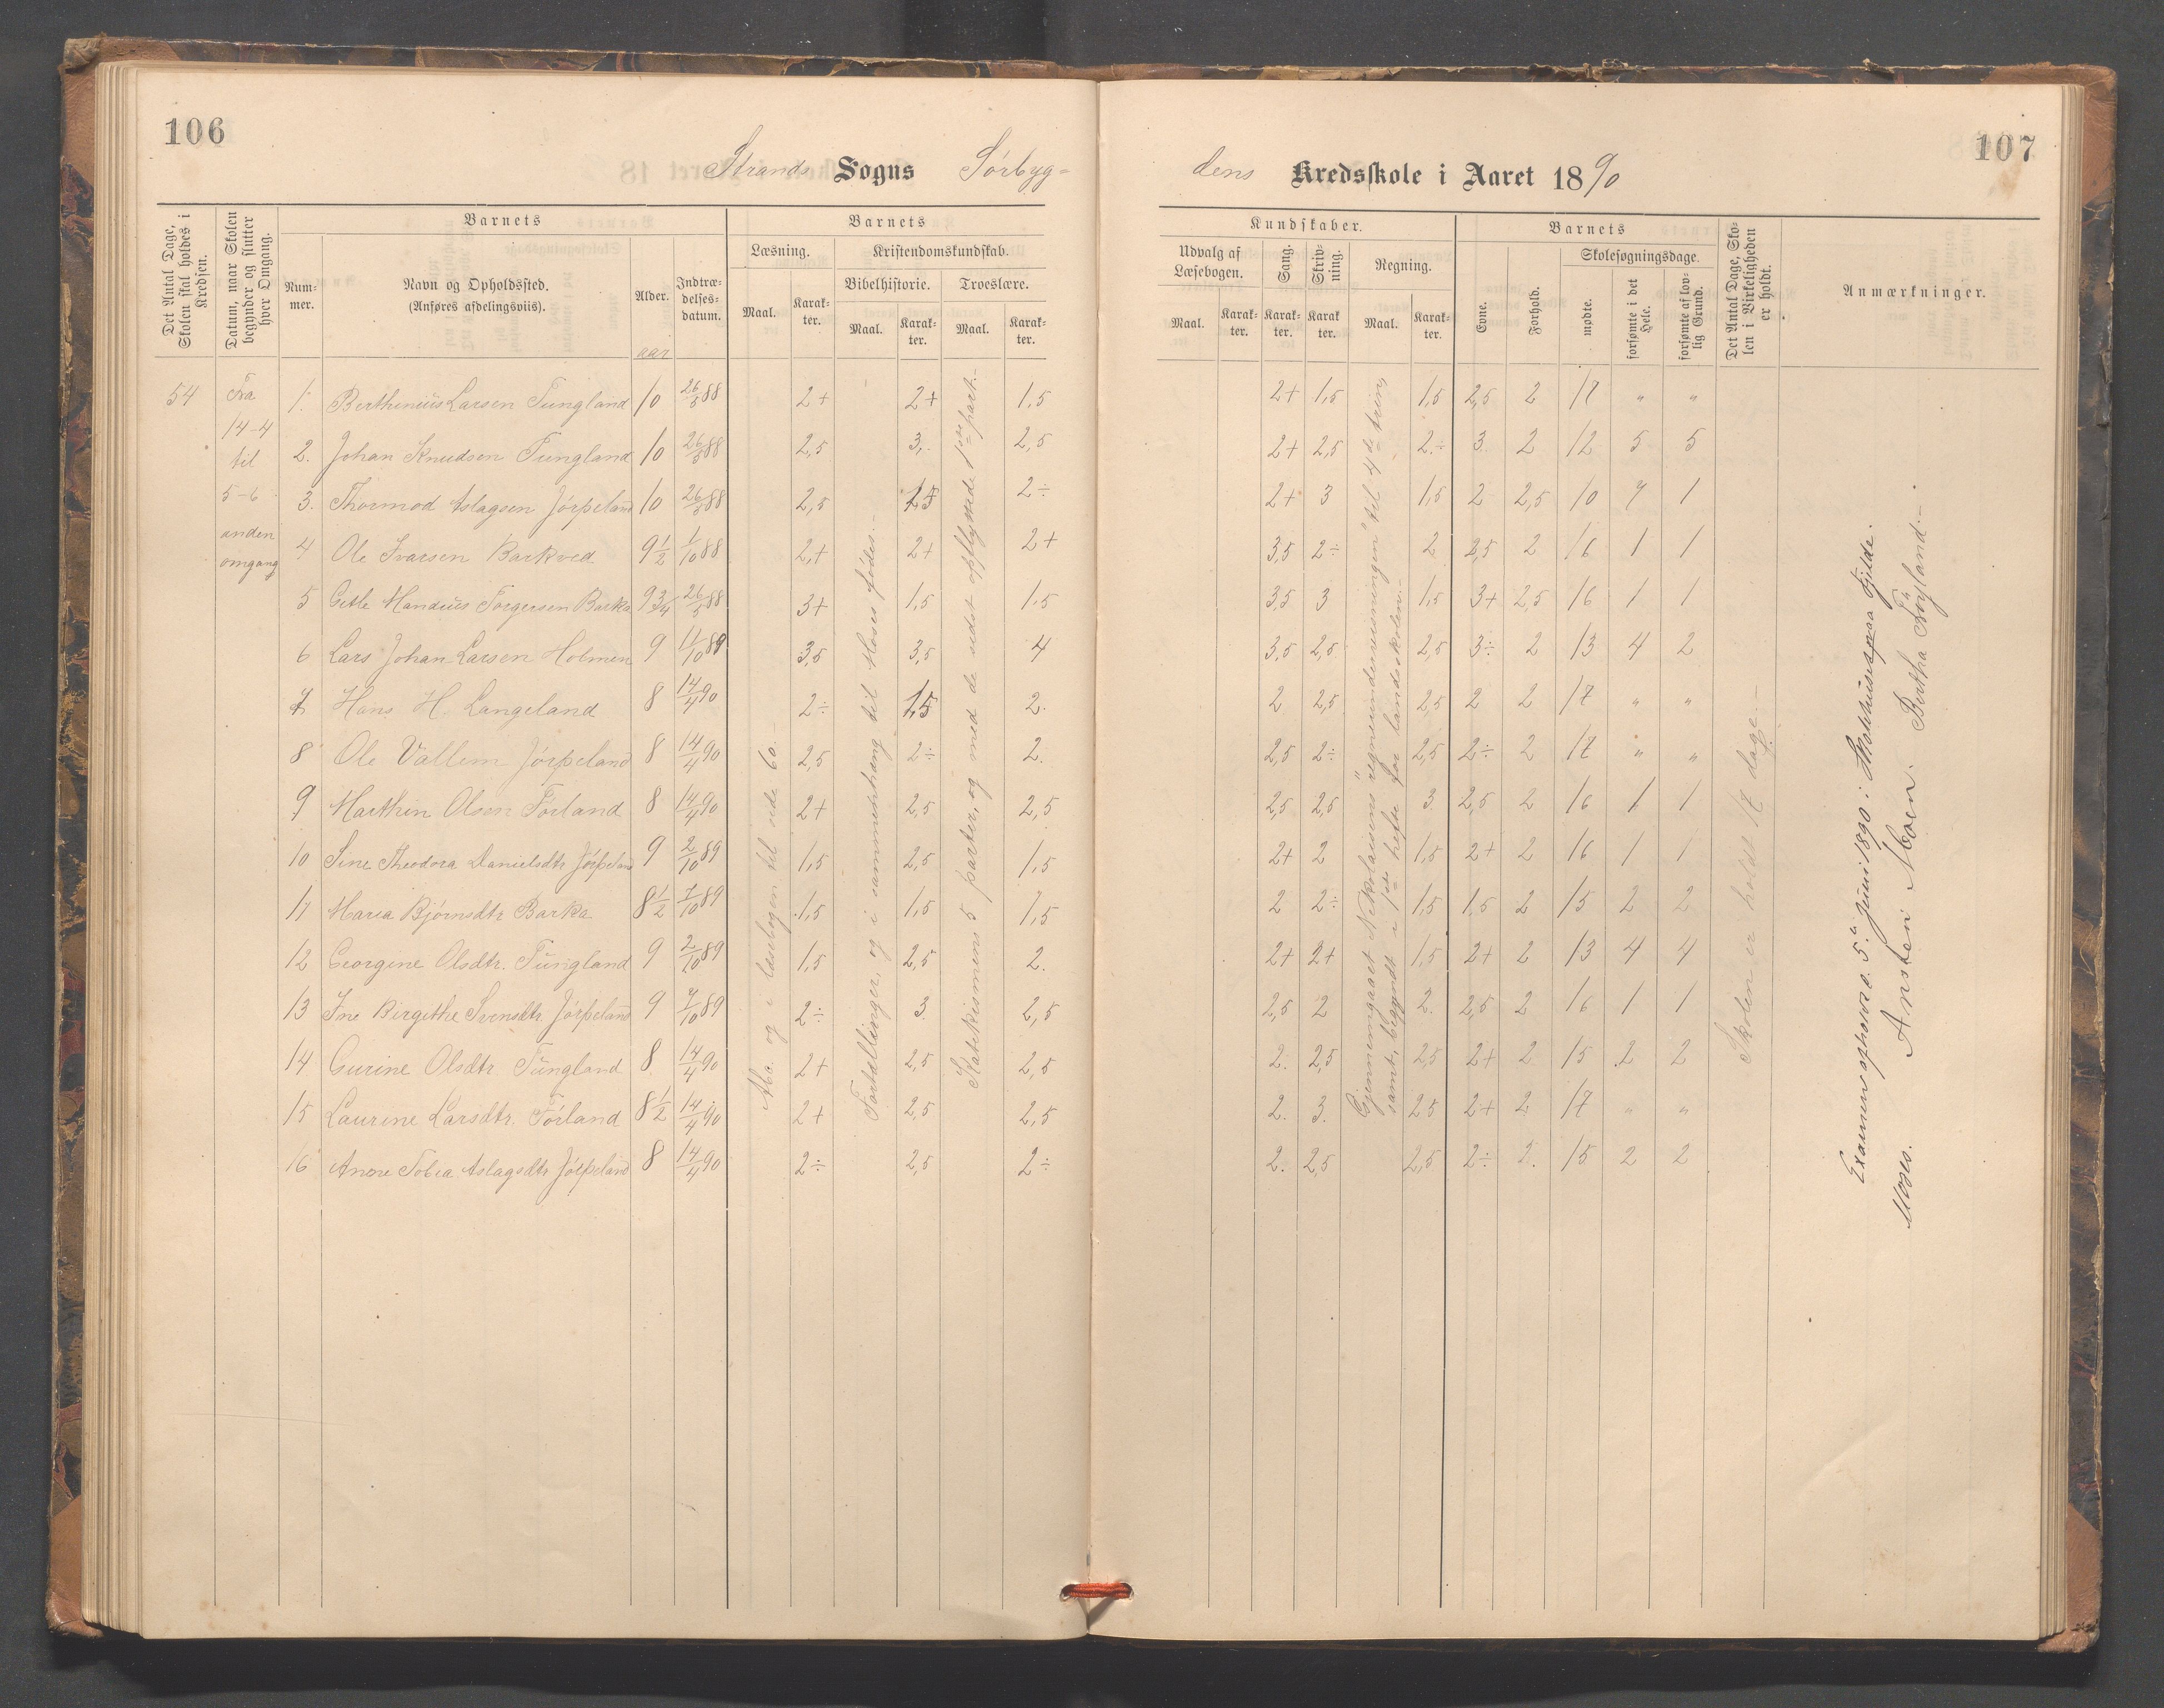 106
Strands Sogns Sörbyg=
Det Antal Dage, Skolen skal holdes i Kredsen.
Datum, naar Skolen begynder og slutter hver Omgang.
Barnets
Num=mer.
Navn og Opholdssted.
(Anføres afdelingsviis).
Alder.
aar
Indtræ=delses=datum.
Barnets
Læsning.
Maal.
Karak=ter.
Kristendomskundskab.
Bibelhistorie.
Maal.
Karak=ter.
Troeslære.
Maal.
Karak=ter.
54
Fra
14-4
til
5-6
anden
omgang
1. Berthinius Larsen Tungland 10 26/5 88 2+ 2+ 1,5
2. Johan Knudsen Tungland 10 26/5 88 2,5 3, 2,5
3. Thormod Aslagsen Jörpeland 10 26/5 88 2,5 1,5 2÷
4 Ole Ivarsen Barkved 9½ 1/10 88 2,+ 2+ 2+
5 Getle Mandius Torgersen Barka 9¾ 26/5 88 3+ 1,5 1,5
6 Lars Johan Larsen Holmen 9 11/10 89 3,5 3,5 4
7 Hans H. Langeland 8 14/4 90 2÷ 1,5 2.
8 Ole Vallem Jörpeland 8 14/4 90 2,5 2÷ 2.
9 Marthin Olsen Förland 8 14/4 90 2+ 2,5 2,5
10 Sine Theodora Danielsdtr Jörpeland 9 2/10 89 1,5 2,5 1,5
11 Maria Björnsdtr Barka 8½ 7/10 89 1,5 1,5 1,5
12 Georgine Olsdtr. Tungland 9 2/10 89 1,5 2,5 2.
13 Ine Birgithe Svensdtr Jörpeland 9 7/10 89 2÷ 3. 2,5
14 Gurine Olsdtr Tungland 8 14/4 90 2+ 2,5 2,5
15 Laurine Larsdtr. Förland 8½ 14/4 90 2+ 2,5 2,5
16 Anne Tobea Aslagsdtr Jörpeland 8 14/4 90 2÷ 2,5 2÷
Aba. og i læsebogen til side 60.
Fortællinger, og i sammenhæng til Moses fødes.-
Katekismens 5 parter, og med de udst opflyttede 1ste part.-
107
dens Kredsskole i Aaret 1890
Kundskaber.
Udvalg af Læsebogen.
Maal.
Karak=ter.
Sang.
Karak=ter.
Skriv=ning.
Karak ter.
Regning.
Maal.
Karak=ter.
Barnets
Evne.
Forhold.
Skolesøgningsdage.
mødte.
forsømte i det Hele.
forsømte af lov=lig Grund.
Det Antal Dage, Sko=len i Virkeligheden er holdt.
Anmærkninger.
2+ 1,5 1,5 2,5 2 17 " "
2+ 2,5 2÷ 3 2 12 5 5
2+ 3 1,5 2 2,5 10 7 1
3,5 2÷ 2 2,5 2 16 1 1
3,5 3 1,5 3+ 2,5 16 1 1
3,5 2,5 2,5 3÷ 2 13 4 2
2 2,5 2,5 2 2 17 " "
2,5 2÷ 2,5 2÷ 2 17 " "
2,5 2,5 3. 2,5 2 16 1 1
2+ 2 1,5 2+ 2 16 1 1
2 2÷ 1,5 1,5 2 15 2 2
2+ 2+ 1,5 2+ 2 13 4 4
2,5 2 2. 2,5 2 16 1 1
2. 2,5 2,5 2+ 2 15 2 2
2. 3. 2,5 2+ 2 17 " "
2. 2,5 2,5 2÷ 2. 15 2 2
Gjennemgaaet Nikolaisens "regneundervisningen" til 4de trin,
samt, begyndt i 1ste hefte for landsskolen.-
Skolen er holdt 17 dage.-
Examen ophold. 5te Juni 1890 i Stokhuset paa Fjilde.
Moses. Ansten Moen. Bertha Föyland.-